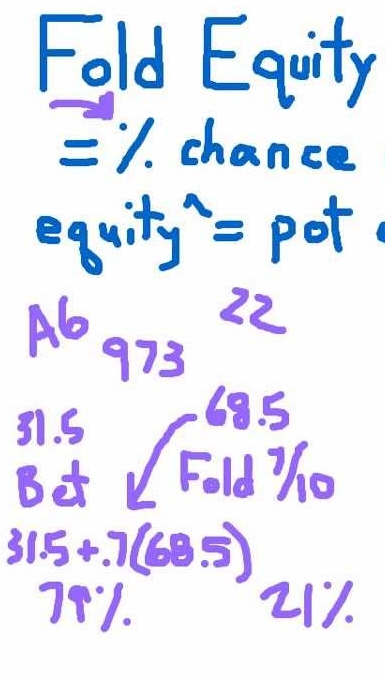 Fold Equity
= % chance
equity^ = pot
A6 22
973
31.5 68.5
Bet Fold 7/10
31.5+.7(68.5)
79% 21%